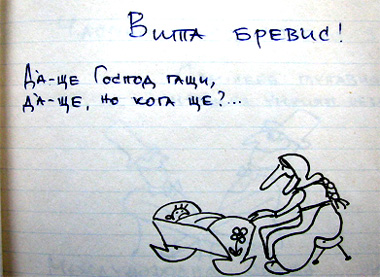 Вита бревис!
Да-ще Господ гащи,
да-ще, но кога ще?...